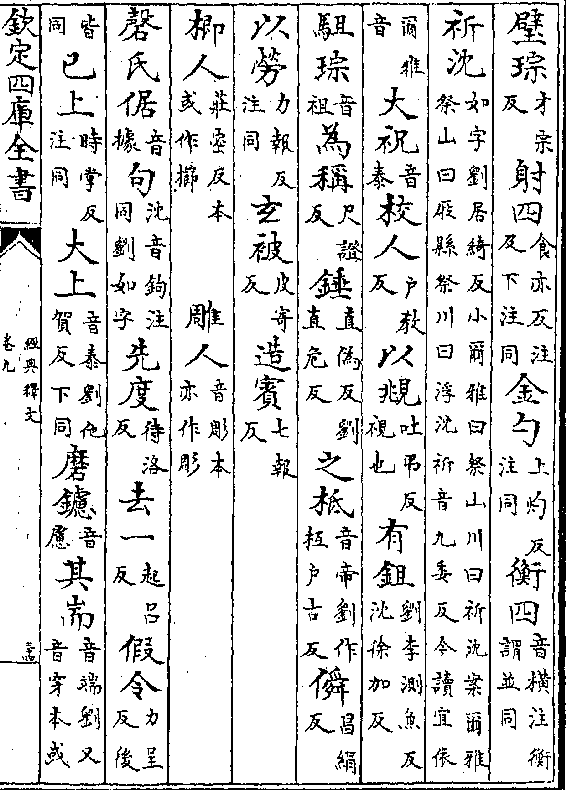 璧琮才宗反射四食亦反注及下注同金勺上灼反注同衡四音橫注衡謂並同
祈沈如字劉居綺反小爾雅曰祭山川曰祈沈案爾雅祭山曰庪縣祭川曰浮沈祈音九委反今讀宜依
爾雅音大祝音泰校人戶教反以覜吐弔反視也有鉏劉李測魚反沈徐加反
駔琮音祖為稱尺證反錘直偽反劉直危反之柢音帝劉作枑戶古反僢昌絹反
以勞力報反注同玄被皮寄反造賓七報反
楖人莊密反本或作櫛雕人音彫本亦作彫
磬氏倨音據句沈音鉤注同劉如字先度待洛反去一起呂反假令力呈反後
皆同已上時掌反注同大上音泰劉他賀反下同磨鑢音慮其耑音端劉又音穿本或
欽定四庫全書
經典釋文
卷九